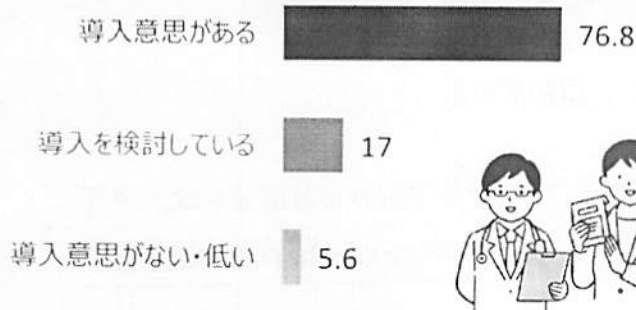 導入意思がある 76.8
導入を検討している 17
導入意思がない・低い 5.6